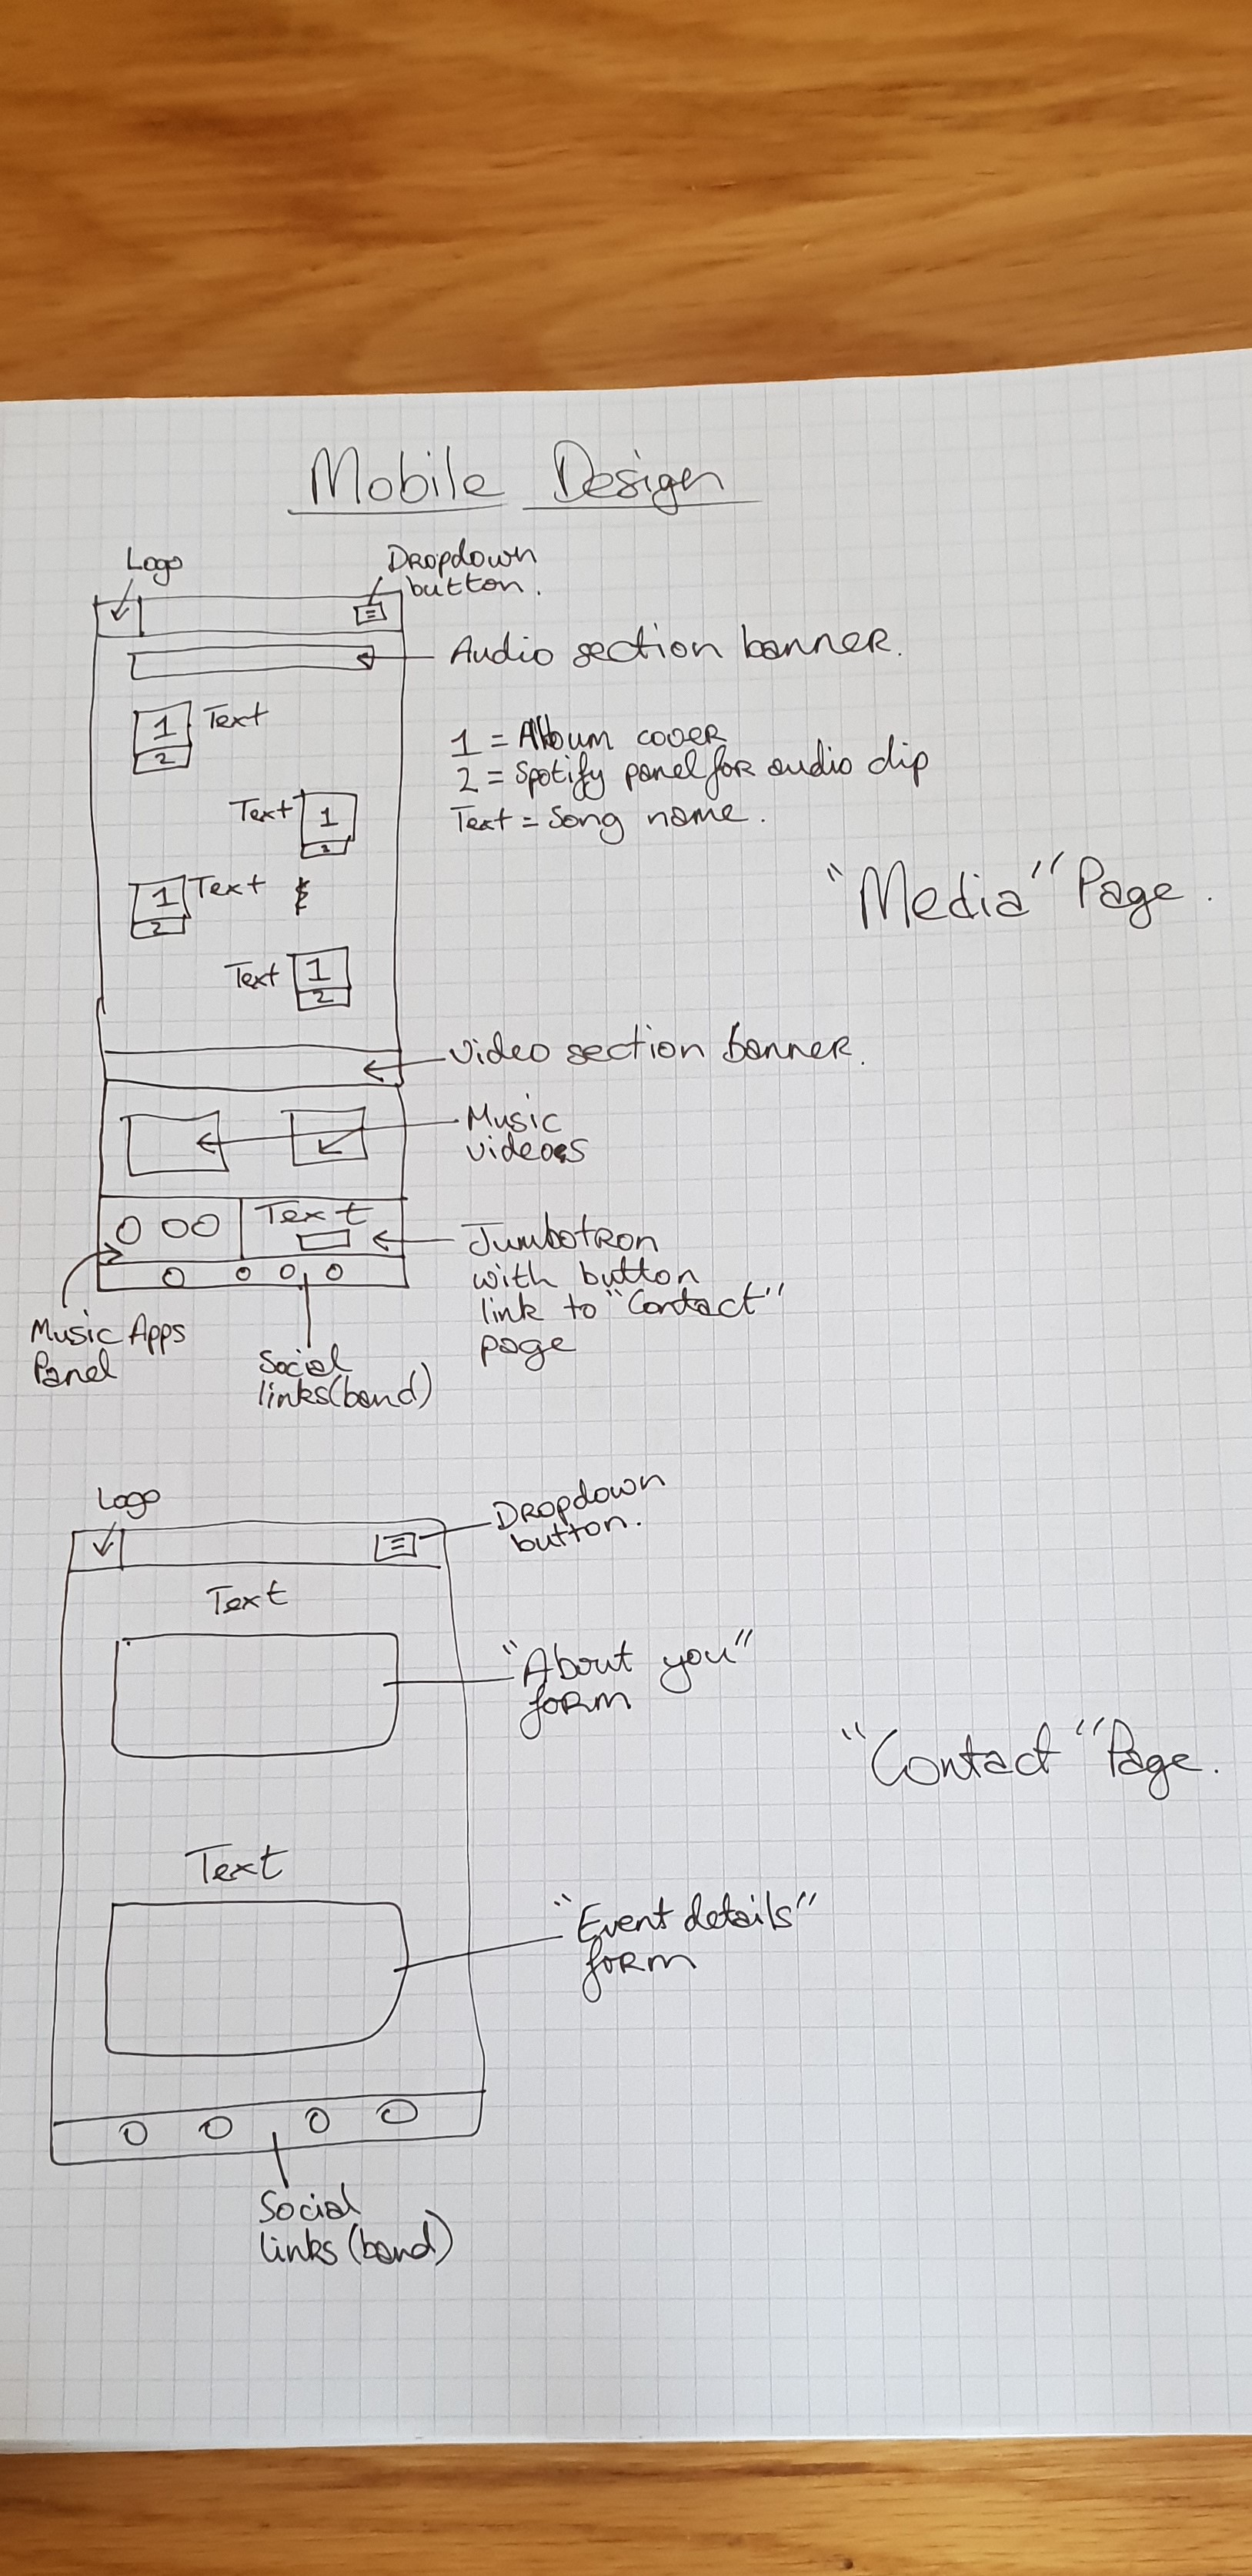 Mobile Design
Logo
Dropdown
button.
Audio section banner.
1 Text
2
1 = Album cover
2 = Spotify panel for audio clip
Text = Song name.
Text 1
2
"Media" Page.
1 Text
2
Text 1
2
Video section banner.
Music
videos
Text
Jumbotron
with button
link to "Contact"
page
Music Apps
Panel
Social
links (band)
Logo
Dropdown
button.
Text
"About you"
form
"Contact" Page.
Text
"Event details"
form
Social
links (band)